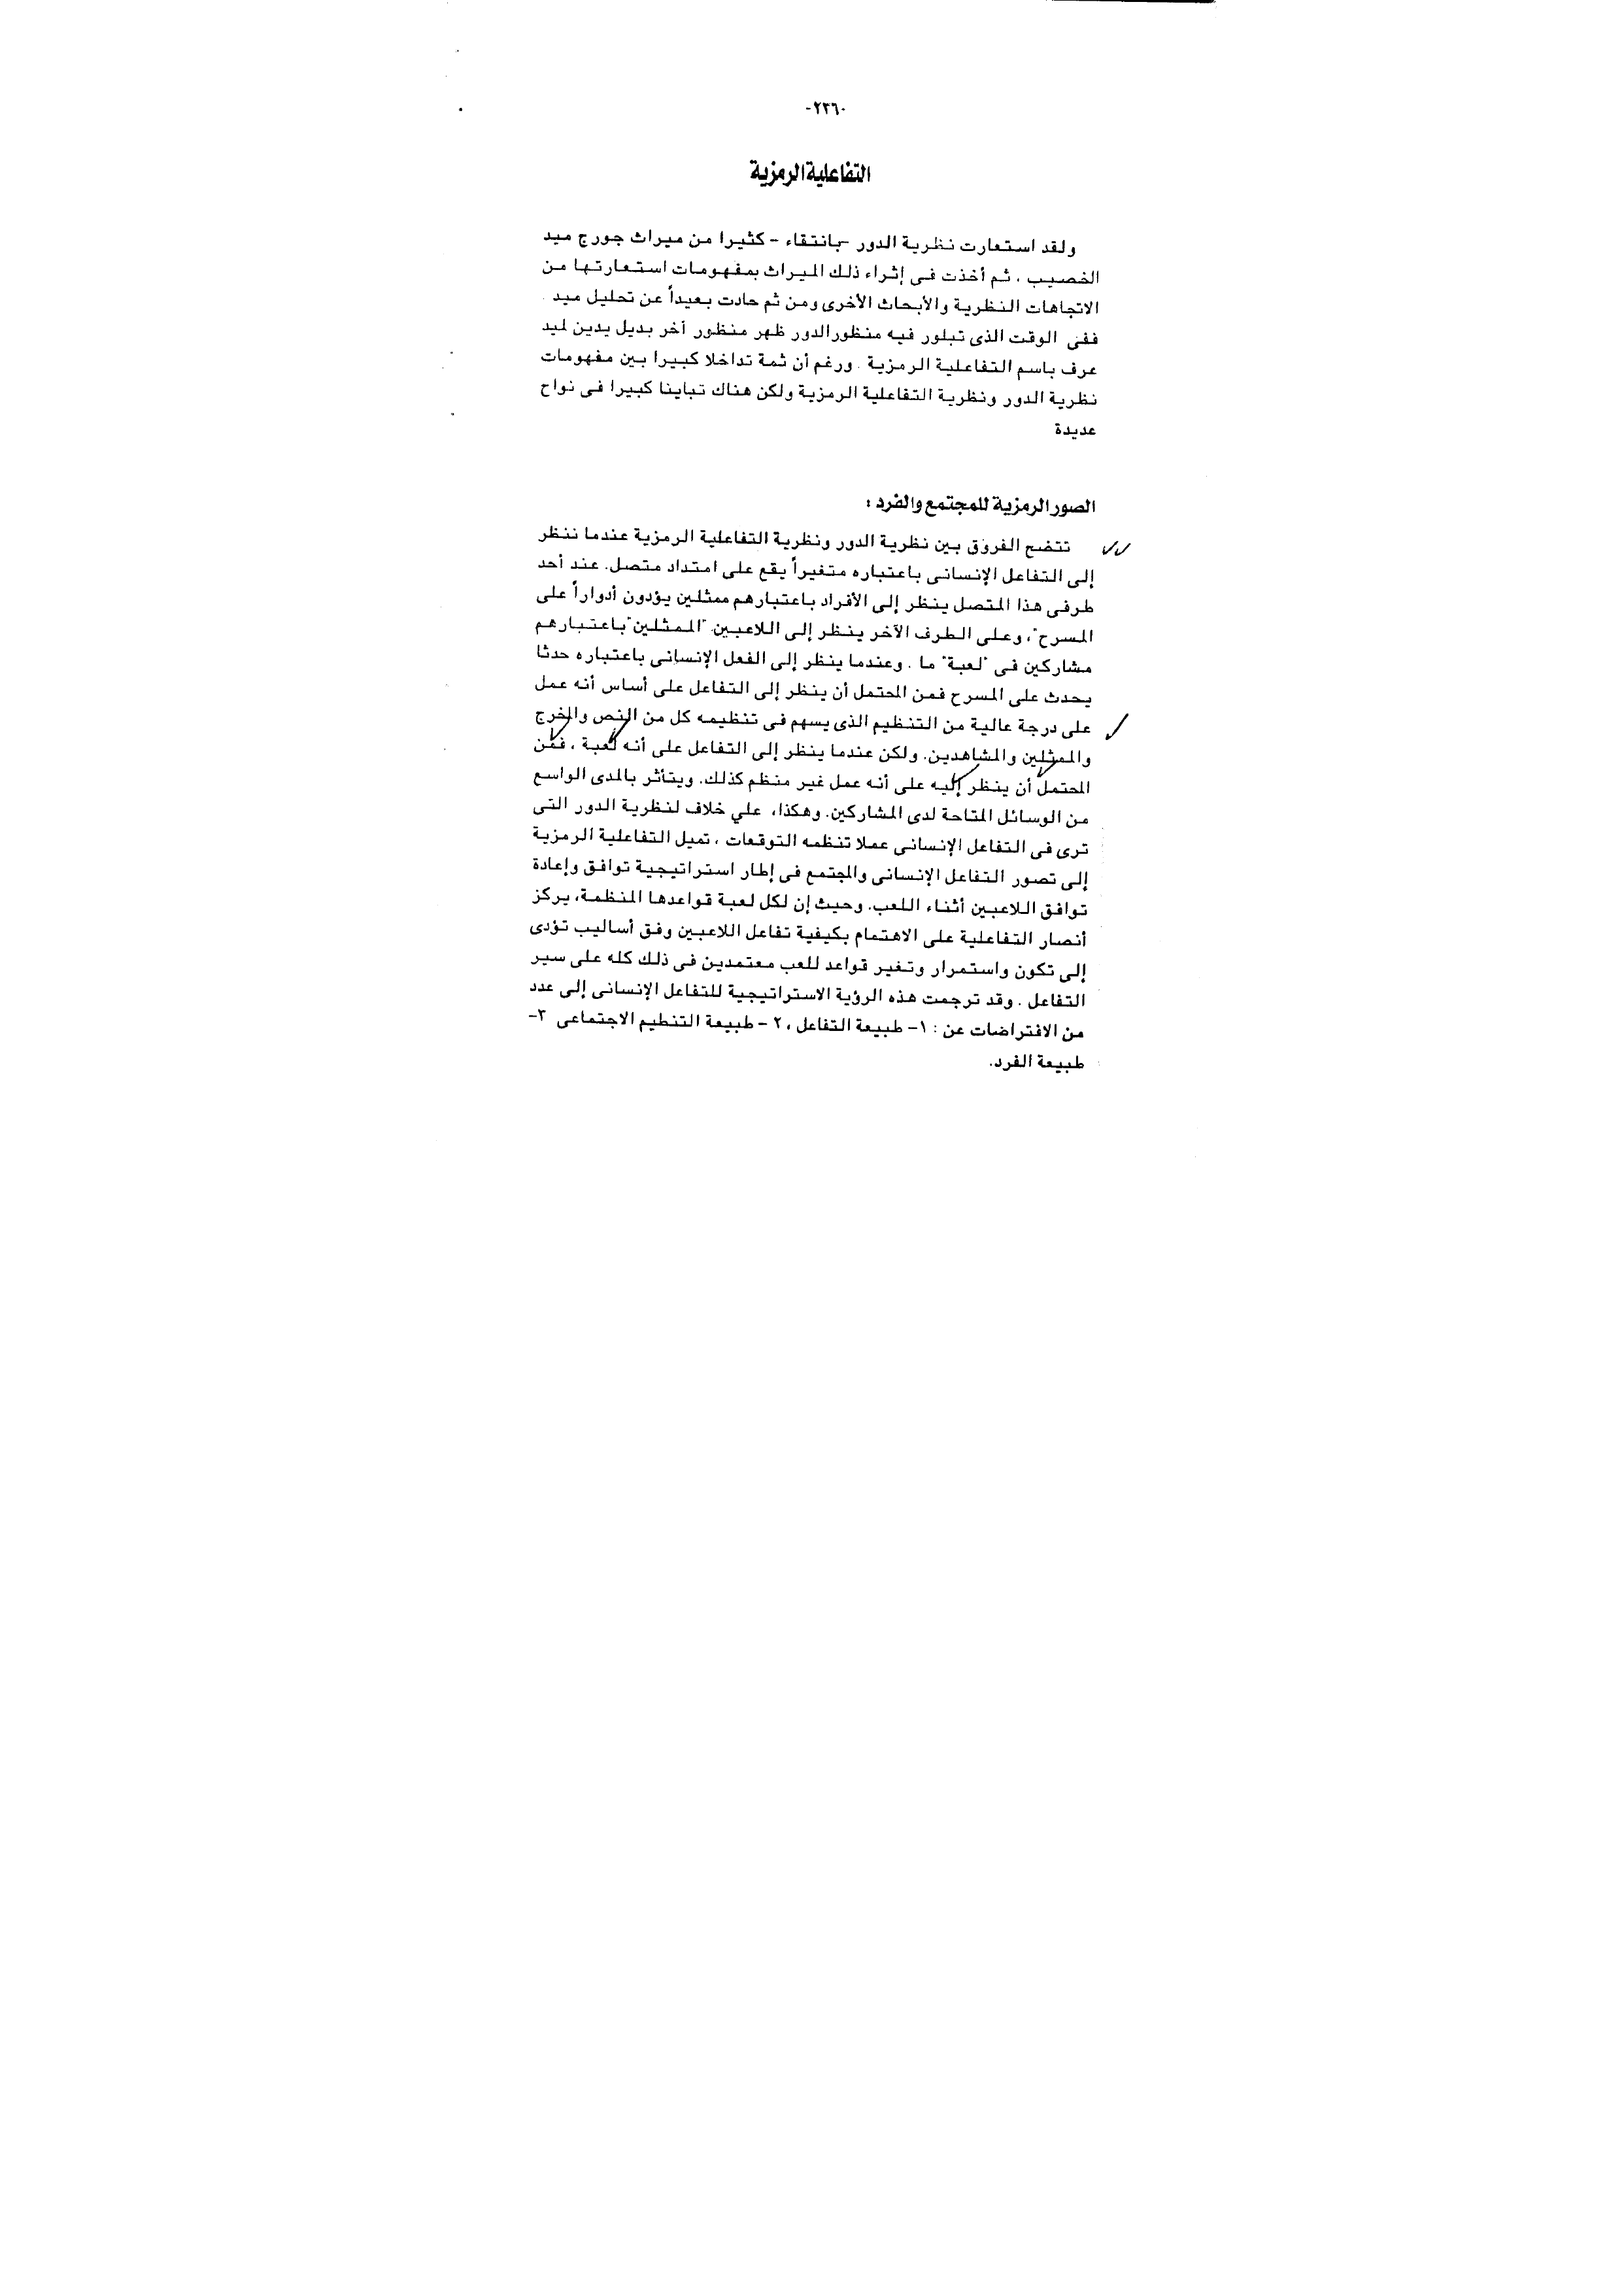 -٢٣٦-
التفاعلية الرمزية
ولقد استعارت نظرية الدور -بانتقاء - كثيرا من ميراث جورج ميد
الخصيب ، ثم أخذت فى إثراء ذلك الميراث بمفهومات استعارتها من
الاتجاهات النظرية والأبحاث الأخرى ومن ثم حادت بعيداً عن تحليل ميد .
ففى الوقت الذى تبلور فيه منظور الدور ظهر منظور آخر بديل يدين لميد
عرف باسم التفاعلية الرمزية . ورغم أن ثمة تداخلا كبيرا بين مفهومات
نظرية الدور ونظرية التفاعلية الرمزية ولكن هناك تباينا كبيرا فى نواح
عديدة
الصور الرمزية للمجتمع والفرد :
تتضح الفروق بين نظرية الدور ونظرية التفاعلية الرمزية عندما ننظر
إلى التفاعل الإنسانى باعتباره متغيراً يقع على امتداد متصل. عند أحد
طرفى هذا المتصل ينظر إلى الأفراد باعتبارهم ممثلين يؤدون أدواراً على
المسرح"، وعلى الطرف الآخر ينظر إلى اللاعبين "الممثلين" باعتبارهم
مشاركين فى "لعبة" ما . وعندما ينظر إلى الفعل الإنسانى باعتباره حدثا
يحدث على المسرح فمن المحتمل أن ينظر إلى التفاعل على أساس أنه عمل
على درجة عالية من التنظيم الذى يسهم فى تنظيمه كل من النص والمخرج
والممثلين والمشاهدين. ولكن عندما ينظر إلى التفاعل على أنه لعبة ، فمن
المحتمل أن ينظر إليه على أنه عمل غير منظم كذلك. ويتأثر بالمدى الواسع
من الوسائل المتاحة لدى المشاركين. وهكذا، علي خلاف لنظرية الدور التى
ترى فى التفاعل الإنسانى عملا تنظمه التوقعات ، تميل التفاعلية الرمزية
إلى تصور التفاعل الإنسانى والمجتمع فى إطار استراتيجية توافق وإعادة
توافق اللاعبين أثناء اللعب. وحيث إن لكل لعبة قواعدها المنظمة، يركز
أنصار التفاعلية على الاهتمام بكيفية تفاعل اللاعبين وفق أساليب تؤدى
إلى تكون واستمرار وتغير قواعد للعب معتمدين فى ذلك كله على سير
التفاعل . وقد ترجمت هذه الرؤية الاستراتيجية للتفاعل الإنسانى إلى عدد
من الافتراضات عن : ١- طبيعة التفاعل ، ٢ - طبيعة التنظيم الاجتماعى ٣-
طبيعة الفرد.